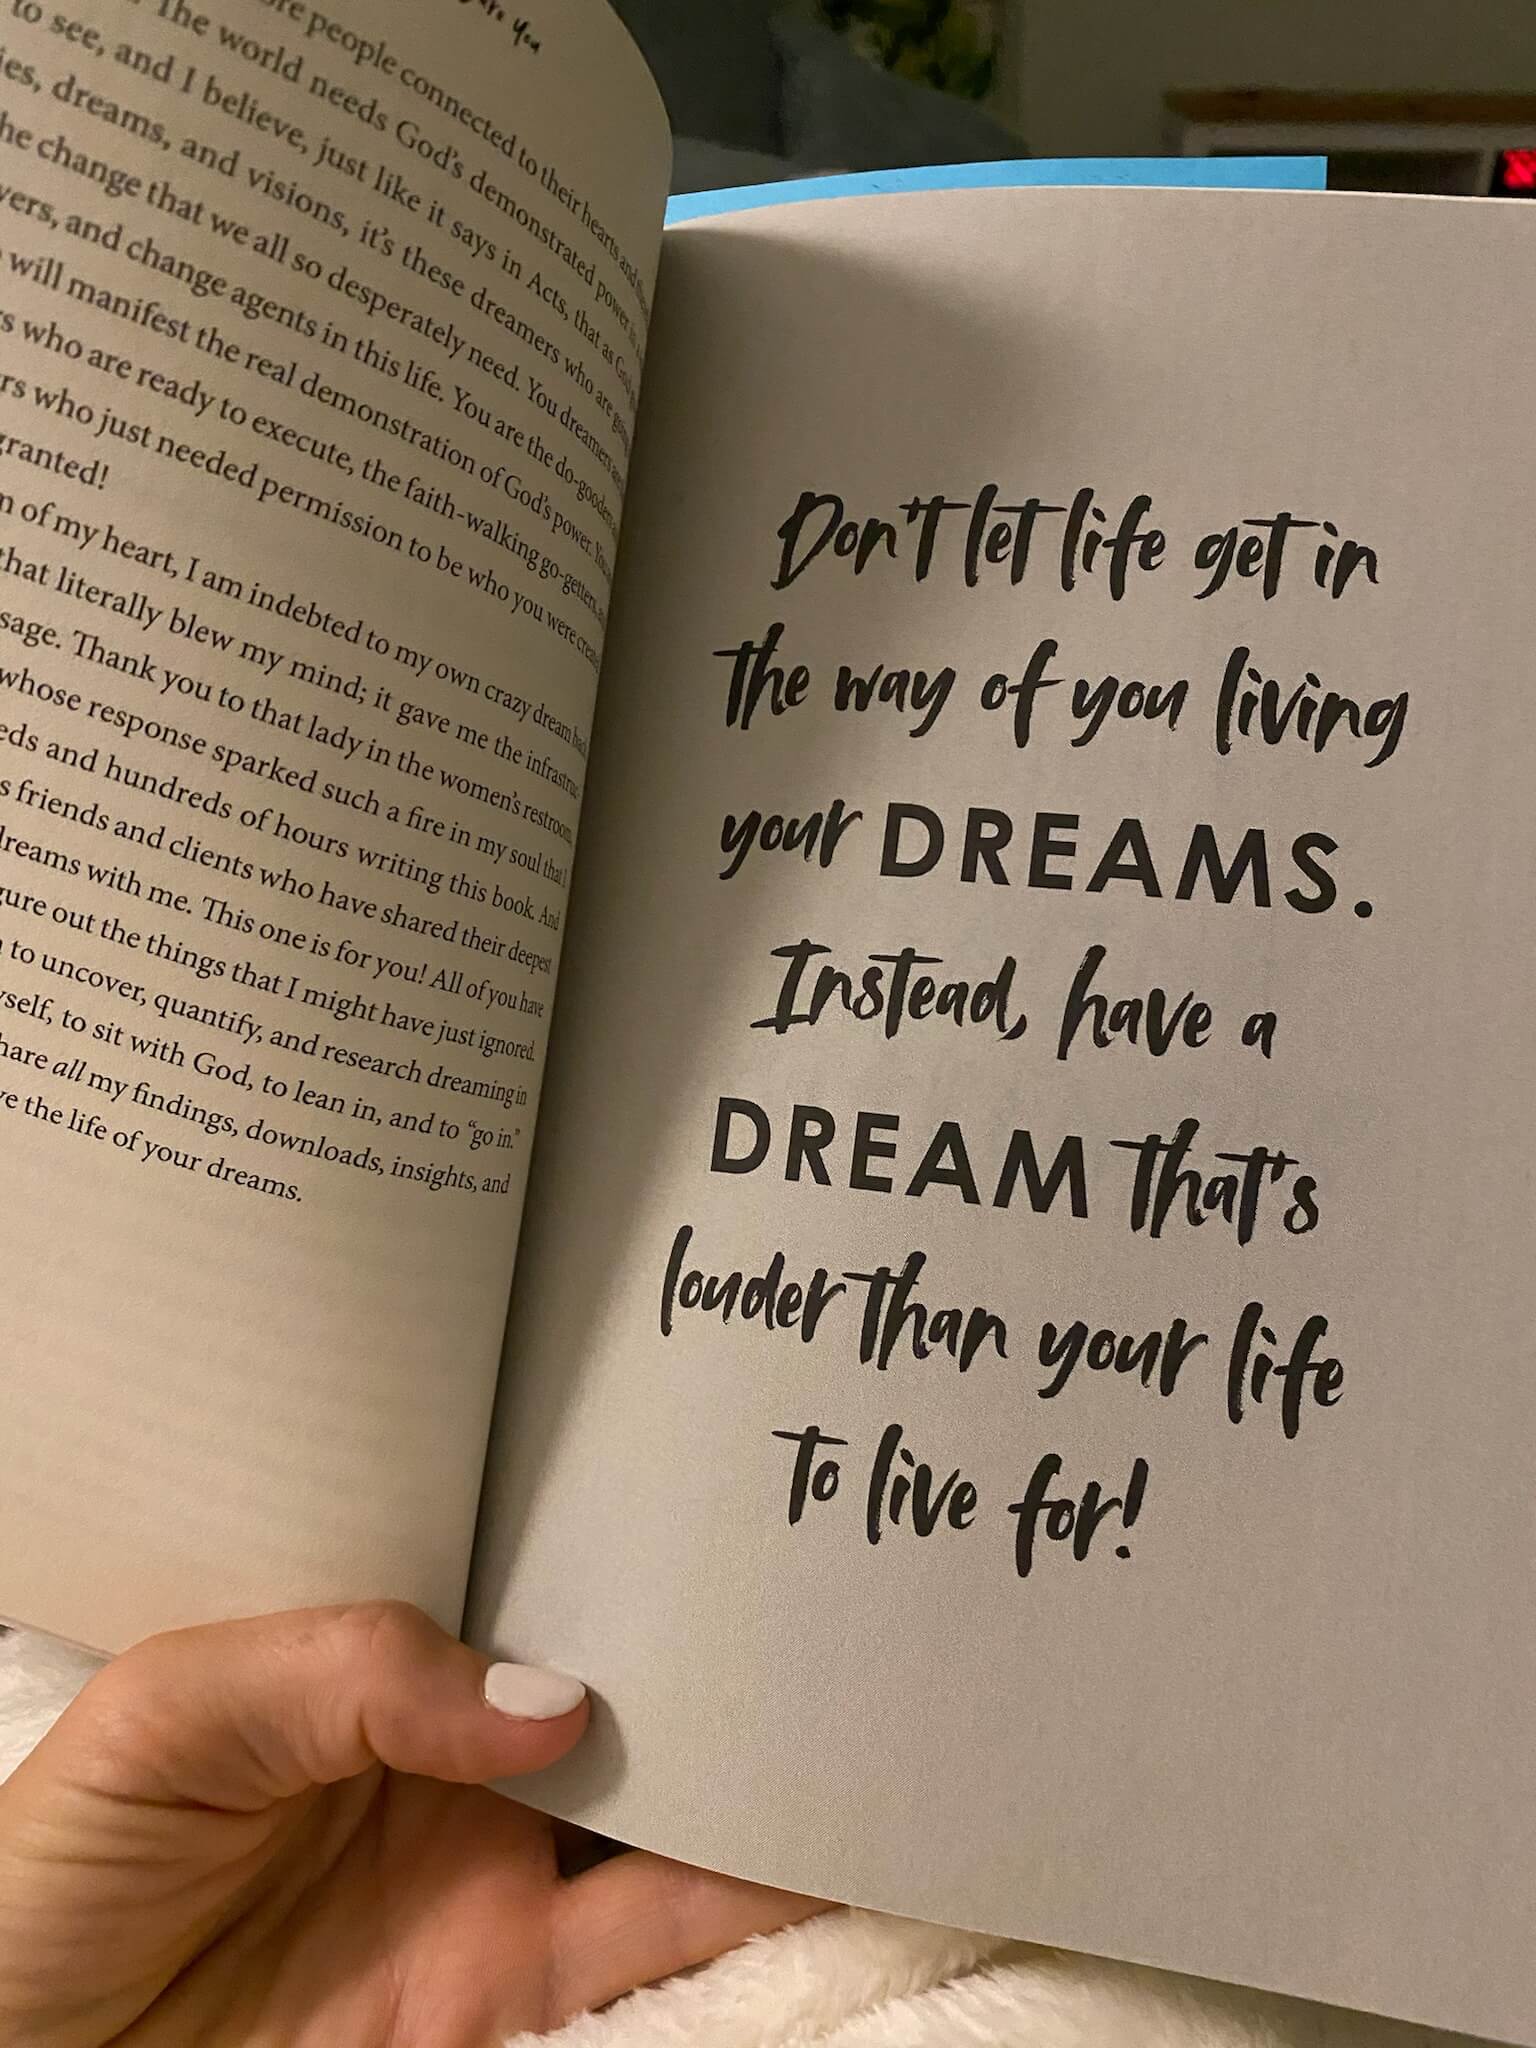 are you
people connected to their hearts and
The world needs God's demonstrated power in
to see, and I believe, just like it says in Acts, that as God
dreams, and visions, it's these dreamers who are going
the change that we all so desperately need. You dreamers are
and change agents in this life. You are the do-gooders
will manifest the real demonstration of God's power. You
who are ready to execute, the faith-walking go-getters,
who just needed permission to be who you were
granted!
of my heart, I am indebted to my own crazy dream
that literally blew my mind; it gave me the infrastruc-
Thank you to that lady in the women's restroom
whose response sparked such a fire in my soul that I
and hundreds of hours writing this book. And
friends and clients who have shared their deepest
dreams with me. This one is for you! All of you have
out the things that I might have just ignored.
to uncover, quantify, and research dreaming in
to sit with God, to lean in, and to "go in."
all my findings, downloads, insights, and
the life of your dreams.
Don't let life get in
the way of you living
your DREAMS.
Instead, have a
DREAM that's
louder than your life
to live for!